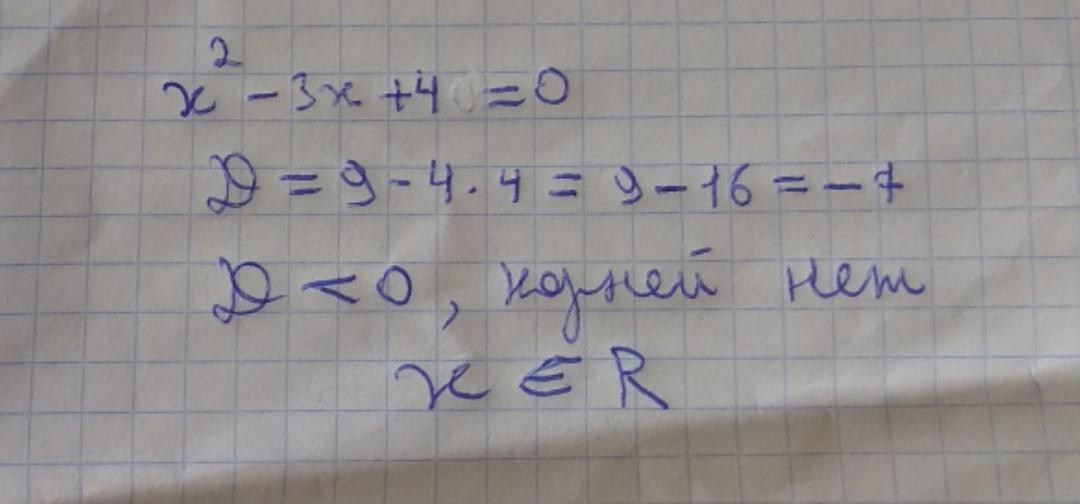 x² - 3x + 4 = 0
D = 9 - 4 · 4 = 9 - 16 = -7
D < 0, корней нет
x ∈ R